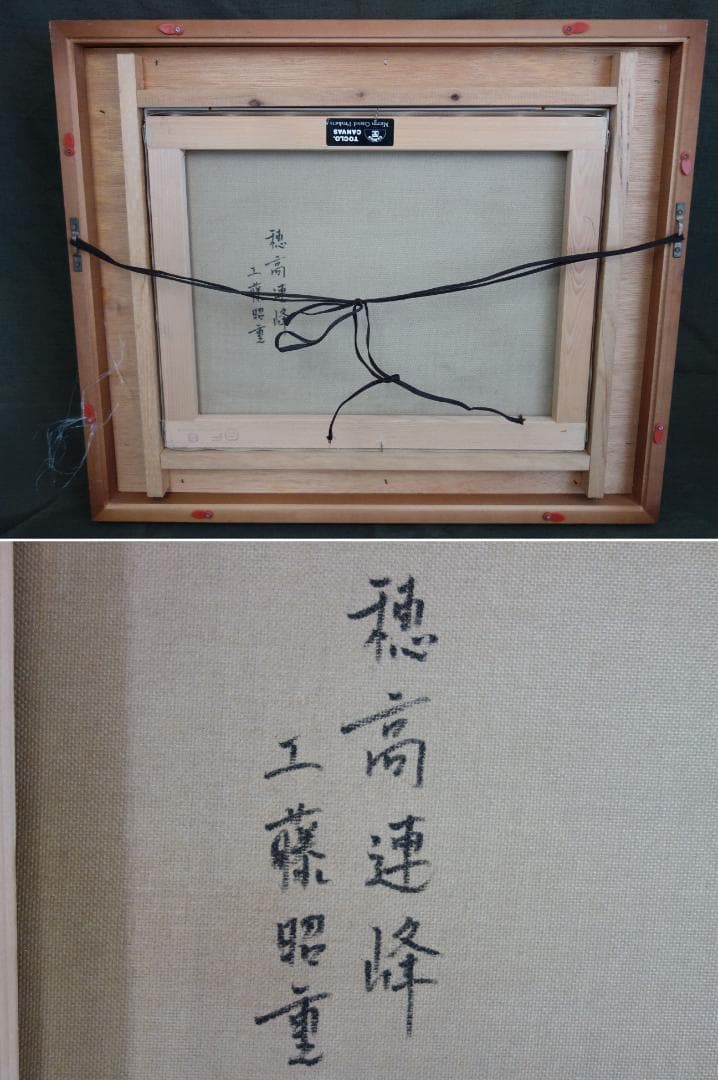 Maruoka Canvas Products
TOCLO.
CANVAS
穂高連峰
工藤昭重
穂高連峰
工藤昭重